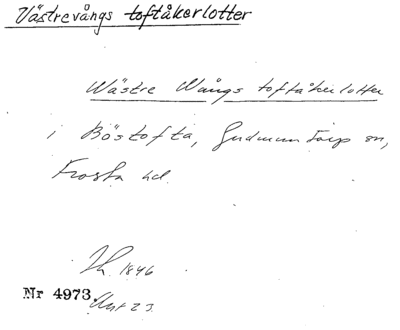 Västrevångs toftåkerlotter
Wästre Wångs toftåkerlotter
i Böstofta, Gudmuntorp sn,
Frosta hd.
1846
Nr 4973.